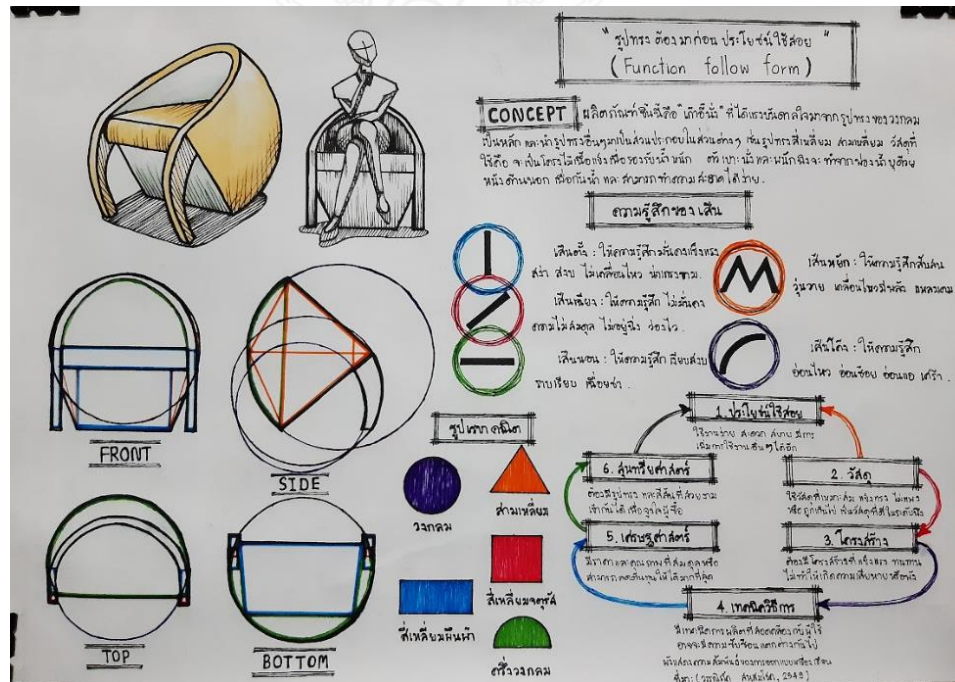 " รูปทรง ต้องมาก่อน ประโยชน์ใช้สอย "
( Function follow form )
CONCEPT ผลิตภัณฑ์ชิ้นนี้คือ "เก้าอี้นั่ง" ที่ได้แรงบันดาลใจมาจาก รูปทรงของวงกลม
เป็นหลัก และนำรูปทรงอื่นๆมาเป็นส่วนประกอบในส่วนต่างๆ เช่นรูปทรงสี่เหลี่ยม สามเหลี่ยม วัสดุที่
ใช้คือ จะเป็นโครงไม้เนื้อแข็งเพื่อรองรับน้ำหนัก ตัวเบาะนั่งและพนักพิงจะทำจากฟองน้ำบุด้วย
หนังด้านนอก เพื่อกันน้ำ และสามารถทำความสะอาดได้ง่าย.
ความรู้สึกของเส้น
เส้นตั้ง : ให้ความรู้สึกมั่นคงแข็งแรง
สง่า สงบ ไม่เคลื่อนไหว น่าเกรงขาม.
เส้นเฉียง : ให้ความรู้สึก ไม่มั่นคง
ความไม่สมดุล ไม่อยู่นิ่ง ว่องไว.
เส้นนอน : ให้ความรู้สึก เงียบสงบ
ราบเรียบ เฉื่อยช้า.
เส้นหยัก : ให้ความรู้สึกสับสน
วุ่นวาย เคลื่อนไหวมีพลัง แหลมคม
เส้นโค้ง : ให้ความรู้สึก
อ่อนไหว อ่อนช้อย อ่อนแอ เศร้า.
FRONT
SIDE
TOP
BOTTOM
รูปเรขาคณิต
วงกลม
สามเหลี่ยม
สี่เหลี่ยมผืนผ้า
สี่เหลี่ยมจตุรัส
ครึ่งวงกลม
1. ประโยชน์ใช้สอย
ใช้งานง่าย สะดวก สบาย
2. วัสดุ
3. โครงสร้าง
ต้องมีโครงสร้างที่แข็งแรง ทนทาน
ไม่ทำให้เกิดความเสียหายหรือพัง
4. เทคนิควิธีการ
มีเทคนิคการผลิตที่สอดคล้องกับผู้ใช้
อาจจะมีความซับซ้อนแตกต่างกันไป
5. เศรษฐศาสตร์
มีราคาและคุณภาพที่สมดุลหรือ
สามารถลดต้นทุนให้ได้มากที่สุด
6. สุนทรียศาสตร์
ต้องมีรูปทรง และสีสันที่สวยงาม
เข้ากันได้ เพื่อจูงใจผู้ซื้อ